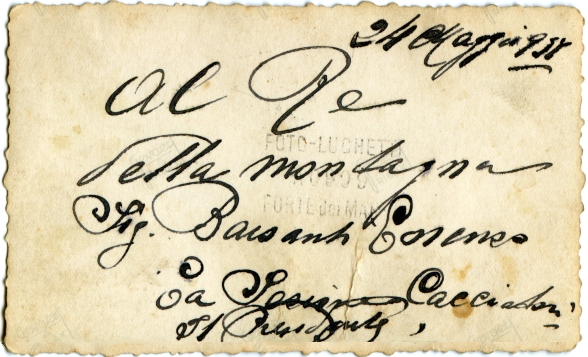 24 Maggio 938
Al Re
Della montagna
FOTO-LUCHETTI
FORTE dei MAR
Sig. Barsanti Lorenzo
La Cacciatori
Il Presidente